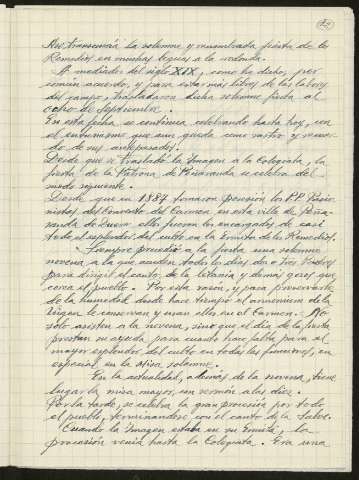 Así transcurría la solemne y renombrada fiesta de los
Remedios en muchas leguas a la redonda.
A mediados del siglo XIX, como he dicho, por
común acuerdo, y para estar más libres de las labores
del campo, trasladaron dicha solemne fiesta al
ocho de Septiembre.
En esta fecha se continúa celebrando hasta hoy, con
el entusiasmo que aun queda como rastro y recuer-
do de sus antepasados.
Desde que se trasladó la Imagen a la Colegiata, la
fiesta de la Patrona de Peñaranda se celebra del
modo siguiente.
Desde que en 1887 tomaron posesión los P.P. Pasio-
nistas del Convento del Carmen en esta villa de Peña-
randa de Duero ellos fueron los encargados de casi
todo el esplendor del culto en la Ermita de los Remedios.
Siempre precedió a la fiesta una solemne
novena a la que acuden todos los días dos o tres Padres
para dirigir el canto de la letanía y demás gozos que
corea el pueblo. Por esta razón, y para preservarle
de la humedad desde hace tiempo el armonium de la
Virgen le conservan y usan ellos en el Carmen. No
solo asisten a la novena, sino que el día de la fiesta
prestan su ayuda para cuanto hace falta para el
mayor esplendor del culto en todas las funciones, en
especial en la Misa solemne.
En la actualidad, además de la novena, tiene
lugar la misa mayor, con sermón a las diez.
Por la tarde, se celebra la gran procesión por todo
el pueblo, terminándose con el canto de la Salve.
Cuando la Imagen estaba en su Ermita, la
procesión venía hasta la Colegiata. Era una